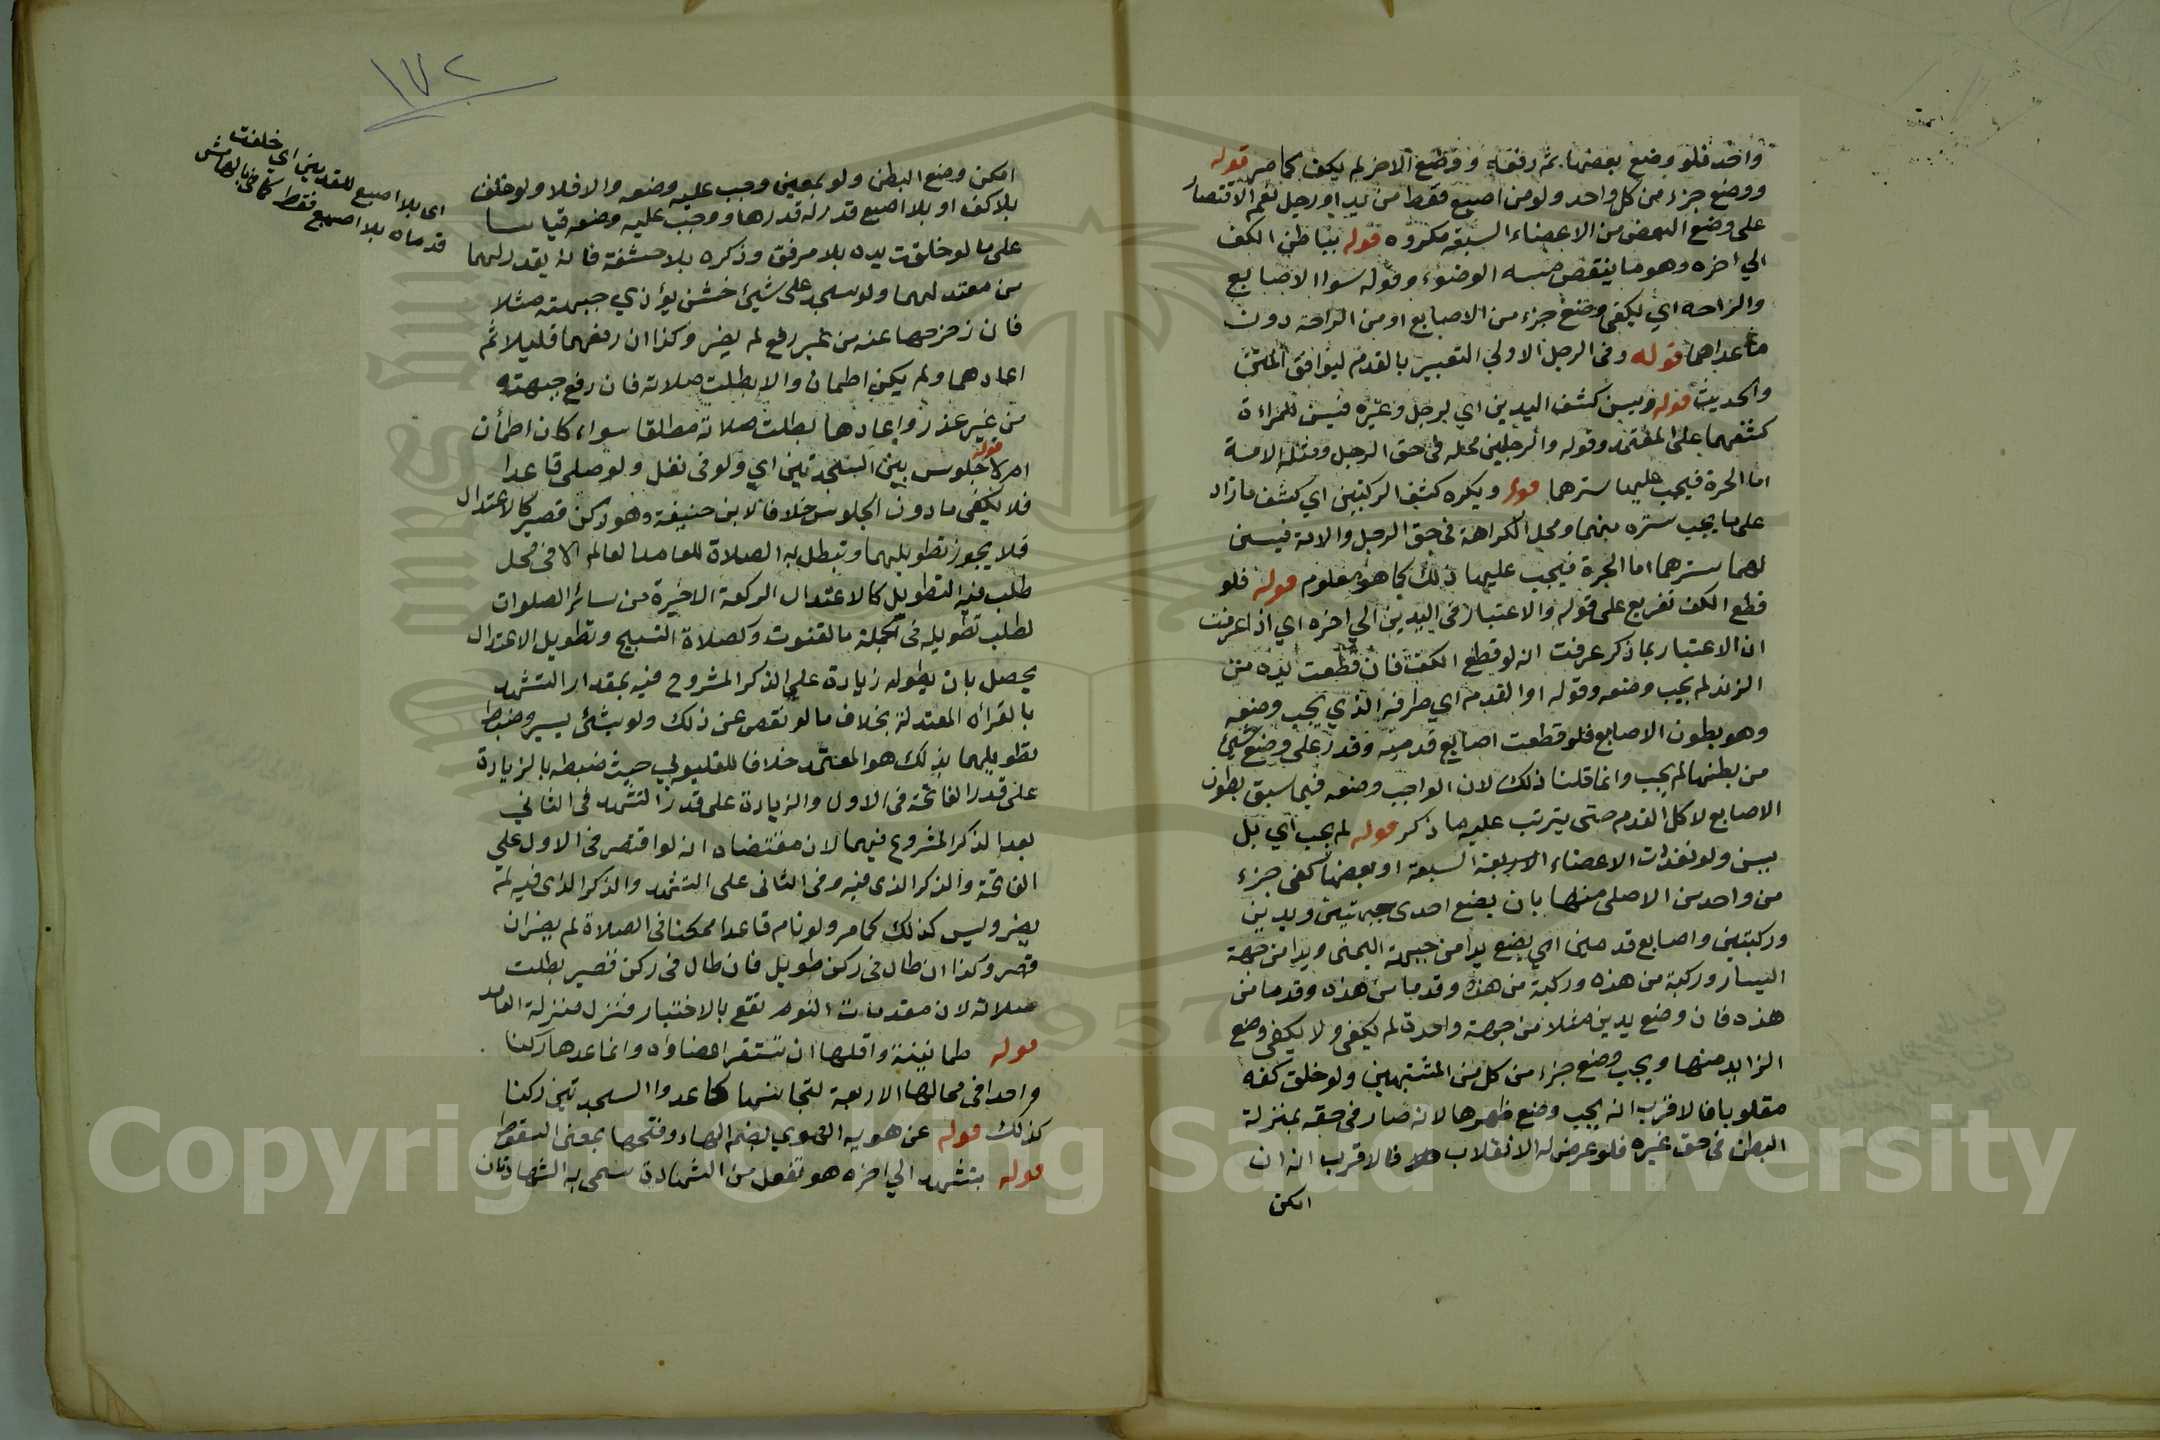 واحد فلو وضع بعضها ثم رفعه ووضع الاخر لم يكف كما مر قوله
ووضع جزء من كل واحد ولو من اصبع فقط من يد او رجل نعم الاقتصار
على وضع البعض من الاعضاء السبعة مكروه قوله بباطن الكف
الي اخره وهو ما ينقض مسه الوضوء وقوله سوا الاصابع
والراحه اي يكفي وضع جزء من الاصابع او من الراحة دون
ما عداهما قوله وفى الرجل الاولي التعبير بالقدم ليوافق المتن
والحديث قوله ويسن كشف اليدين اي لرجل وغيره فيسن للمراة
كشفهما على المعتمد وقوله والرجلين محله في حق الرجل ومثله الامة
اما الحرة فيجب عليها سترهما قوله ويكره كشف الركبتين اي كشف ما زاد
على ما يجب ستره منهما ومحل الكراهة فى حق الرجل والامة فيسن
لهما سترهما اما الحرة فيجب عليها ذلك كما هو معلوم قوله فلو
قطع الكف تفريع على قوله والاعتبار فى اليدين الي اخره اي اذا عرفت
ان الاعتبار بما ذكر عرفت انه لو قطع الكف فان قطعت يده من
الزند لم يجب وضعه وقوله او القدم اي طرفه الذي يجب وضعه
وهو بطون الاصابع فلو قطعت اصابع قدميه وقدر على وضع شئ
من بطنهما لم يجب وانما قلنا ذلك لان الواجب وضعه فيما سبق بطون
الاصابع لا كل القدم حتى يترتب عليه ما ذكر قوله لم يجب اي بل
يسن ولو تعددت الاعضاء السبعة او بعضها كفى جزء
من واحد من الاصلى منها بان يضع احدى جبهتين ويدين
وركبتين واصابع قدمين اي يضع يدا من جهة اليمنى ويدا من جهة
اليسار وركبة من هذه وركبة من هذه وقدما من هذه وقدما من
هذه فان وضع يدين مثلا من جهة واحدة لم يكفي ولا يكفي وضع
الزايد منها ويجب وضع جزء من كل من المشتبهين ولو خلق كفه
مقلوبا فالاقرب انه يجب وضع ظهرها لانه صار فى حقه بمنزلة
البطن فى حق غيره فلو عرض له الانقلاب فالاقرب انه ان
امكن
١٧٢
امكن وضع البطن ولو بمعين وجب عليه وضعه والا فلا ولو خلق
بلا كف او بلا اصبع قدر له قدرها ووجب عليه وضعه قياسا
على ما لو خلقت يده بلا مرفق وذكره بلا حشفة فانه يقدر لهما
من معتدلهما ولو سجد على شيئ خشن يؤذي جبهته مثلا
فان زحزحها عنه من غير رفع لم يضر وكذا ان رفعهما قليلا ثم
اعادهما ولم يكن اطمان والا بطلت صلاته فان رفع جبهته
من غير عذر واعادها بطلت صلاته مطلقا سواء كان اطمأن
ام لا قوله جلوس بين السجدتين اي ولو فى نفل ولو صلى قاعدا
فلا يكفي ما دون الجلوس خلافا لابن حنيفة وهو ركن قصير كالاعتدال
فلا يجوز تطويلهما وتبطل به الصلاة للعامد العالم الا فى محل
طلب فيه التطويل كالاعتدال الركعة الاخيرة من سائر الصلوات
لطلب تطويله فى الجملة بالقنوت وكصلاة التسبيح وتطويل الاعتدال
يحصل بان يطوله زيادة على الذكر المشروع فيه بمقدار التشهد
بالقراه المعتدلة بخلاف ما لو نقص عن ذلك ولو بشئ يسير وضبط
تطويلهما بذلك هو المعتمد خلافا للقليوبي حيث ضبطه بالزيادة
على قدر الفاتحة فى الاول والزيادة على قدر التشهد فى الثاني
بعد الذكر المشروع فيهما لان مقتضاه انه لو اقتصر فى الاول على
الفاتحة والذكر الذى فيه وفى الثانى على التشهد والذكر الذى فيه لم
يضر وليس كذلك كما مر ولو نام قاعدا ممكنا فى الصلاة لم يضر ان
قصر وكذا ان طال فى ركن طويل فان طال فى ركن قصير بطلت
صلاته لان مقدمات النوم تقع بالاختيار فنزل منزلة العامد
قوله طمانينة واقلها ان تستقر اعضاؤه وانما عدها ركنا
واحدا فى محالها الاربعة لتجانسها كما عدوا السجدتين ركنا
كذلك قوله عن هويه الهوي بضم الهاء وفتحها بمعنى السقوط
قوله بتشهد الي اخره هو تفعل من الشهادة سمى به الشهادتان
اى بلا اصبع للقدمين اي خلفت
قدماه بلا اصبع فقط كما فى الهامش
Copyright © King Saud University
1957